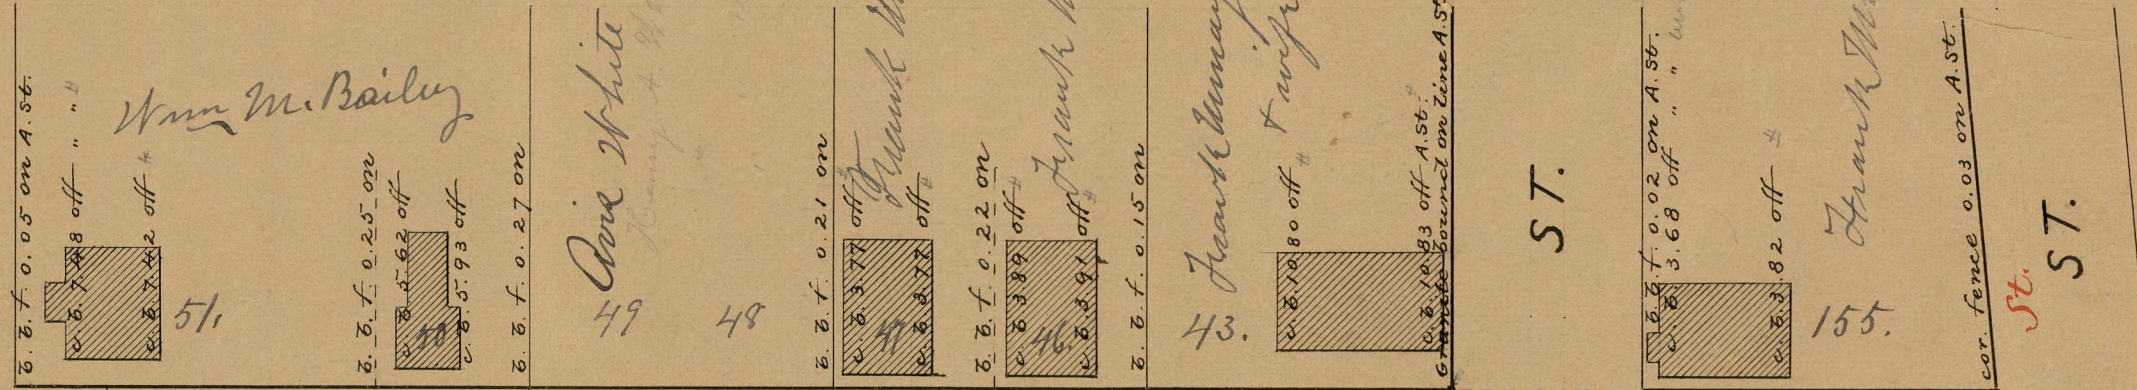 b. b. f. 0.05 on A. St.
c. b. 7.48 off " "
c. b. 7.42 off
Wm M. Bailey
51.
b. b. f. 0.25 on
c. b. 5.62 off
50
c. b. 5.93 off
b. b. f. 0.27 on
Avie White
49
48
b. b. f. 0.21 on
c. b. 3.77 off
47
c. b. 3.77 off
Frank
b. b. f. 0.22 on
c. b. 3.89 off
46.
c. b. 3.91 off
Frank
b. b. f. 0.15 on
43.
Frank
& wife
c. b. 10.80 off
c. b. 10.83 off A. St.
Granite bound on line A. St.
ST.
b. b. f. 0.02 on A. St.
c. b. 3.68 off " "
c. b. 3.82 off
155.
Frank
cor. fence 0.03 on A. St.
St.
ST.